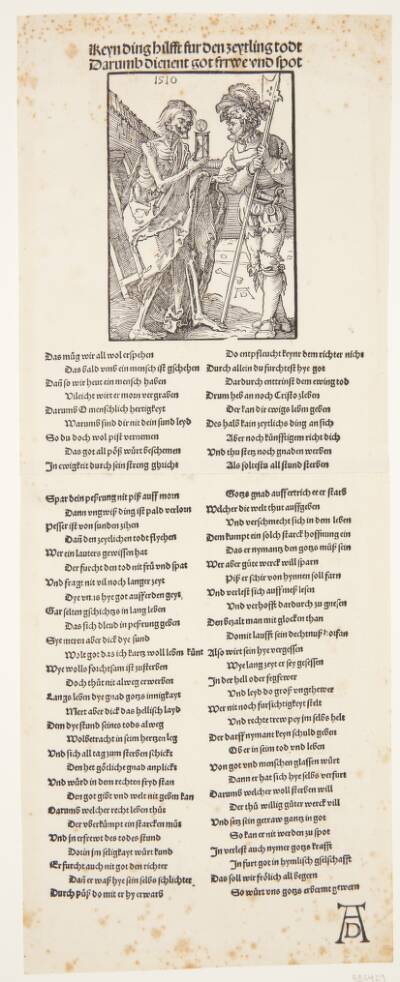 Keyn ding hilfft fur den zeytling todt
Darumb dienent got frrwe vnd spot
1510
Das müg wir all wol erspehen
Das bald vmb ein mensch ist gschehen
Dañ so wir heut ein mensch haben
Vileicht wirt er morn vergraben
Darumb O menschlich hertigkeyt
Warumb sind dir nit dein sund leyd
So du doch wol pist vernomen
Das got all pöß würt beschemen
In ewigkeit durch sein streng
Do entpfleucht keynr dem richter nicht
Durch allein du furchtest hye got
Dardurch enttrinst dem ewing tod
Drum heb an noch Cristo zleben
Der kan dir ewigs leben geben
Des halb kain zeytlichs ding an sich
Aber noch künfftigem richt dich
Vnd thu stetz noch gnaden werben
Als soltestu all stund sterben
Spar dein peßrung nit piß auff morn
Dann vngwiß ding ist pald verlorn
Pesser ist von sunden zihen
Dañ den zeytlichen todt flyehen
Wer ein lauters gewissen hat
Der furcht den tod nit frü vnd spat
Vnd fragt nit vil noch langer zeyt
Dye vn.is hye got auff erden geyt
Gar selten gschichtz in lang leben
Das sich dleud in peßrung geben
Sye meren aber dick dye sund
Wolt got das ich kurtz woll leben künt
Wye wolls forchtsam ist zusterben
Doch thüt nit alweg erwerben
Langs leben dye gnad gotzs innigkayt
Mert aber dick das hellisch layd
Dem dye stund seines tods alweg
Wolbetracht in seim hertzen leg
Vnd sich all tag zum sterben schickt
Den het götliche gnad anplickt
Vnd würd in dem rechten fryd stan
Den got gibt vnd welt nit geben kan
Darumb welcher recht leben thüt
Der vberkümpt ein starcken müt
Vnd in erfrewt des todes stund
Dorin im seligkayt würt kund
Er furcht auch nit got den richter
Dañ er waß hye sein selbs schlichter
Durch püß do mit er hy erwarb
Gotzs gnad auffertrich ee er starb
Welcher die welt thut auffgeben
Vnd verschmecht sich in dem leben
Dem kumpt ein solch starck hoffnung ein
Das er nymantz den gotzs müß sein
Wer aber güte werck will sparn
Piß er schir von hynnen soll farn
Vnd verlest sich auff meß lesen
Vnd verhofft dardurch zu gnesen
Den bezalt man mit glocken than
Domit laufft sein dechtnuß
Also wirt sein hye vergessen
Wye lang zeyt er sey gesessen
In der hell oder fegfewer
Vnd leyd do groß vngthewer
Wer nit noch fursichtigkeyt stelt
Vnd rechte trew pey im selbs helt
Der darff nymant keyn schuld geben
Ob er in seim tod vnd leben
Von got vnd menschen glassen würt
Dann er hat sich hye selbs verfurt
Darumb welcher woll sterben will
Der thü willig güter werck vill
Vnd setz sein getraw gantz in got
So kan er nit werden zu spot
In verlest auch nymer gotzs krafft
In furt got in hymlisch gselschafft
Das soll wir frölich all begern
So würt vns gotzs erbermt gewern
AD